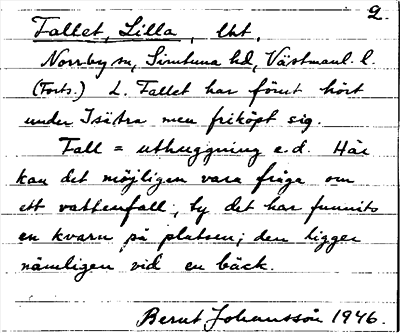 2.
Fallet, Lilla, lht.
Norrby sn, Simtuna hd, Västmanl. l.
(Forts.) L. Fallet har förut hört
under Isätra men friköpt sig.
Fall = uthuggning e.d. Här
kan det möjligen vara fråga om
ett vattenfall, ty det har funnits
en kvarn på platsen; den ligger
nämligen vid en bäck.
Bernt Johansson 1946.